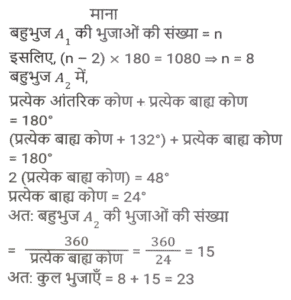 माना
बहुभुज A₁ की भुजाओं की संख्या = n
इसलिए, (n − 2) × 180 = 1080 ⇒ n = 8
बहुभुज A₂ में,
प्रत्येक आंतरिक कोण + प्रत्येक बाह्य कोण
= 180°
(प्रत्येक बाह्य कोण + 132°) + प्रत्येक बाह्य कोण
= 180°
2 (प्रत्येक बाह्य कोण) = 48°
प्रत्येक बाह्य कोण = 24°
अत: बहुभुज A₂ की भुजाओं की संख्या
= 360/प्रत्येक बाह्य कोण = 360/24 = 15
अत: कुल भुजाएँ = 8 + 15 = 23